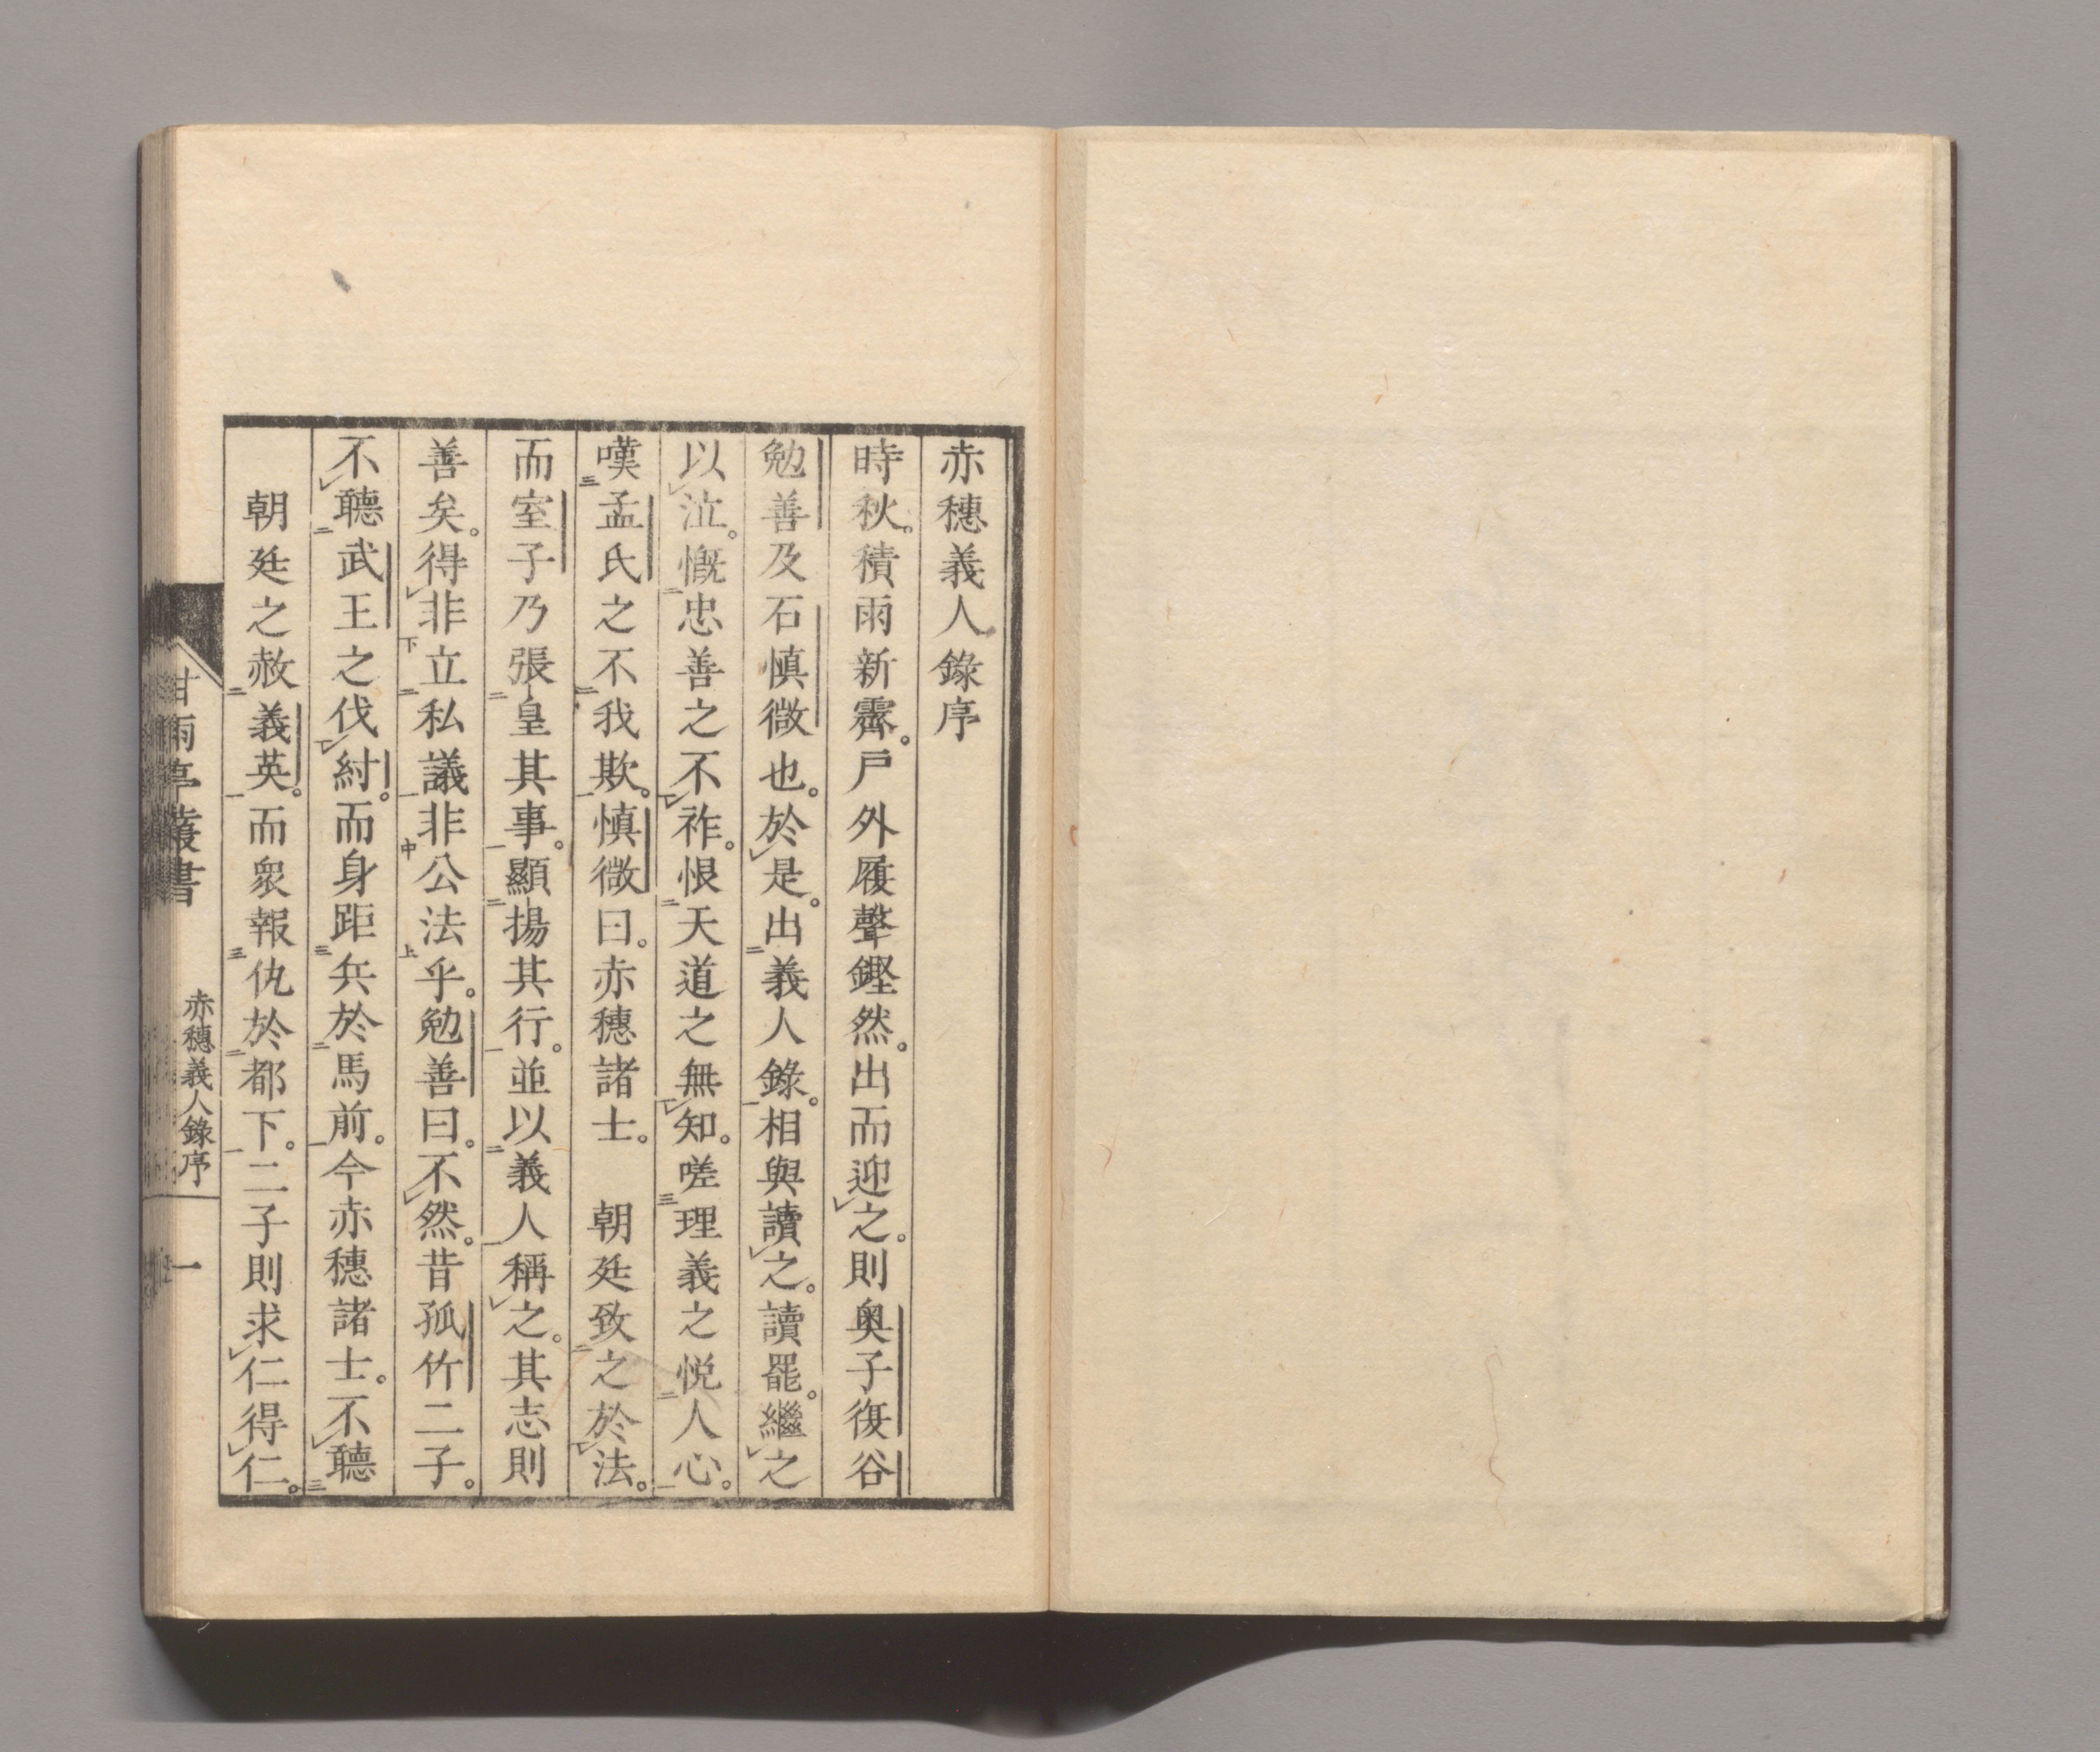 赤穗義人錄序
時秋。積雨新霽。戶外履聲鏗然。出而迎之。則奧子復谷
勉善及石慎微也。於是。出義人錄。相與讀之。讀罷。繼之
以泣。慨忠善之不祚。恨天道之無知。嗟理義之悅人心。
嘆孟氏之不我欺。慎微曰。赤穗諸士。　朝廷致之於法。
而室子乃張皇其事。顯揚其行。並以義人稱之。其志則
善矣。得非立私議非公法乎。勉善曰。不然。昔孤竹二子。
不聽武王之伐紂。而身距兵於馬前。今赤穗諸士。不聽
　朝廷之赦義英。而衆報仇於都下。二子則求仁得仁。
甘雨亭叢書　赤穗義人錄序　一